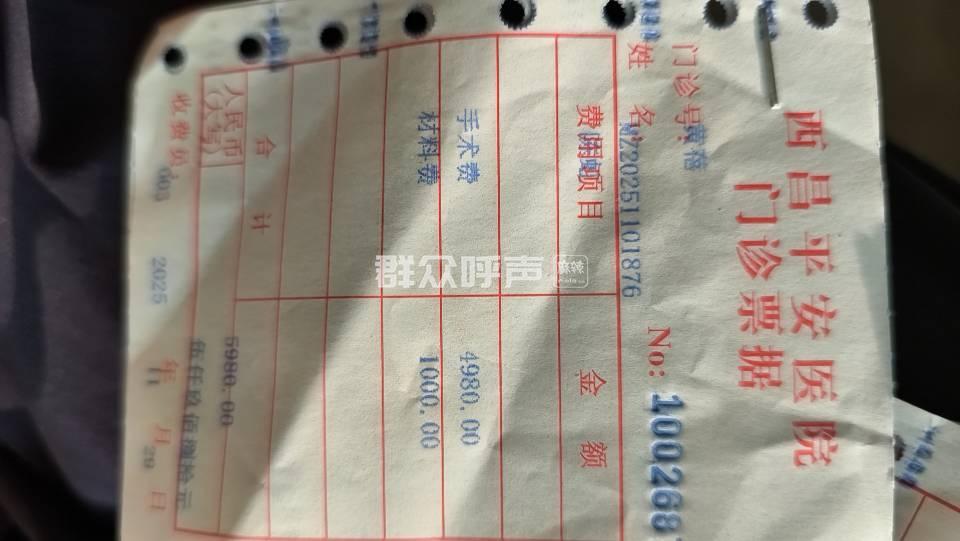 西昌平安医院
门诊票据
No: 100268
门诊号:
姓名:
MZ20251101876
费用项目 金额
手术费 4980.00
材料费 1000.00
合计 5980.00
人民币
(大写)
伍仟玖佰捌拾元
收费员: 003 2025 年 11 月 29 日
群众呼声
麻辣